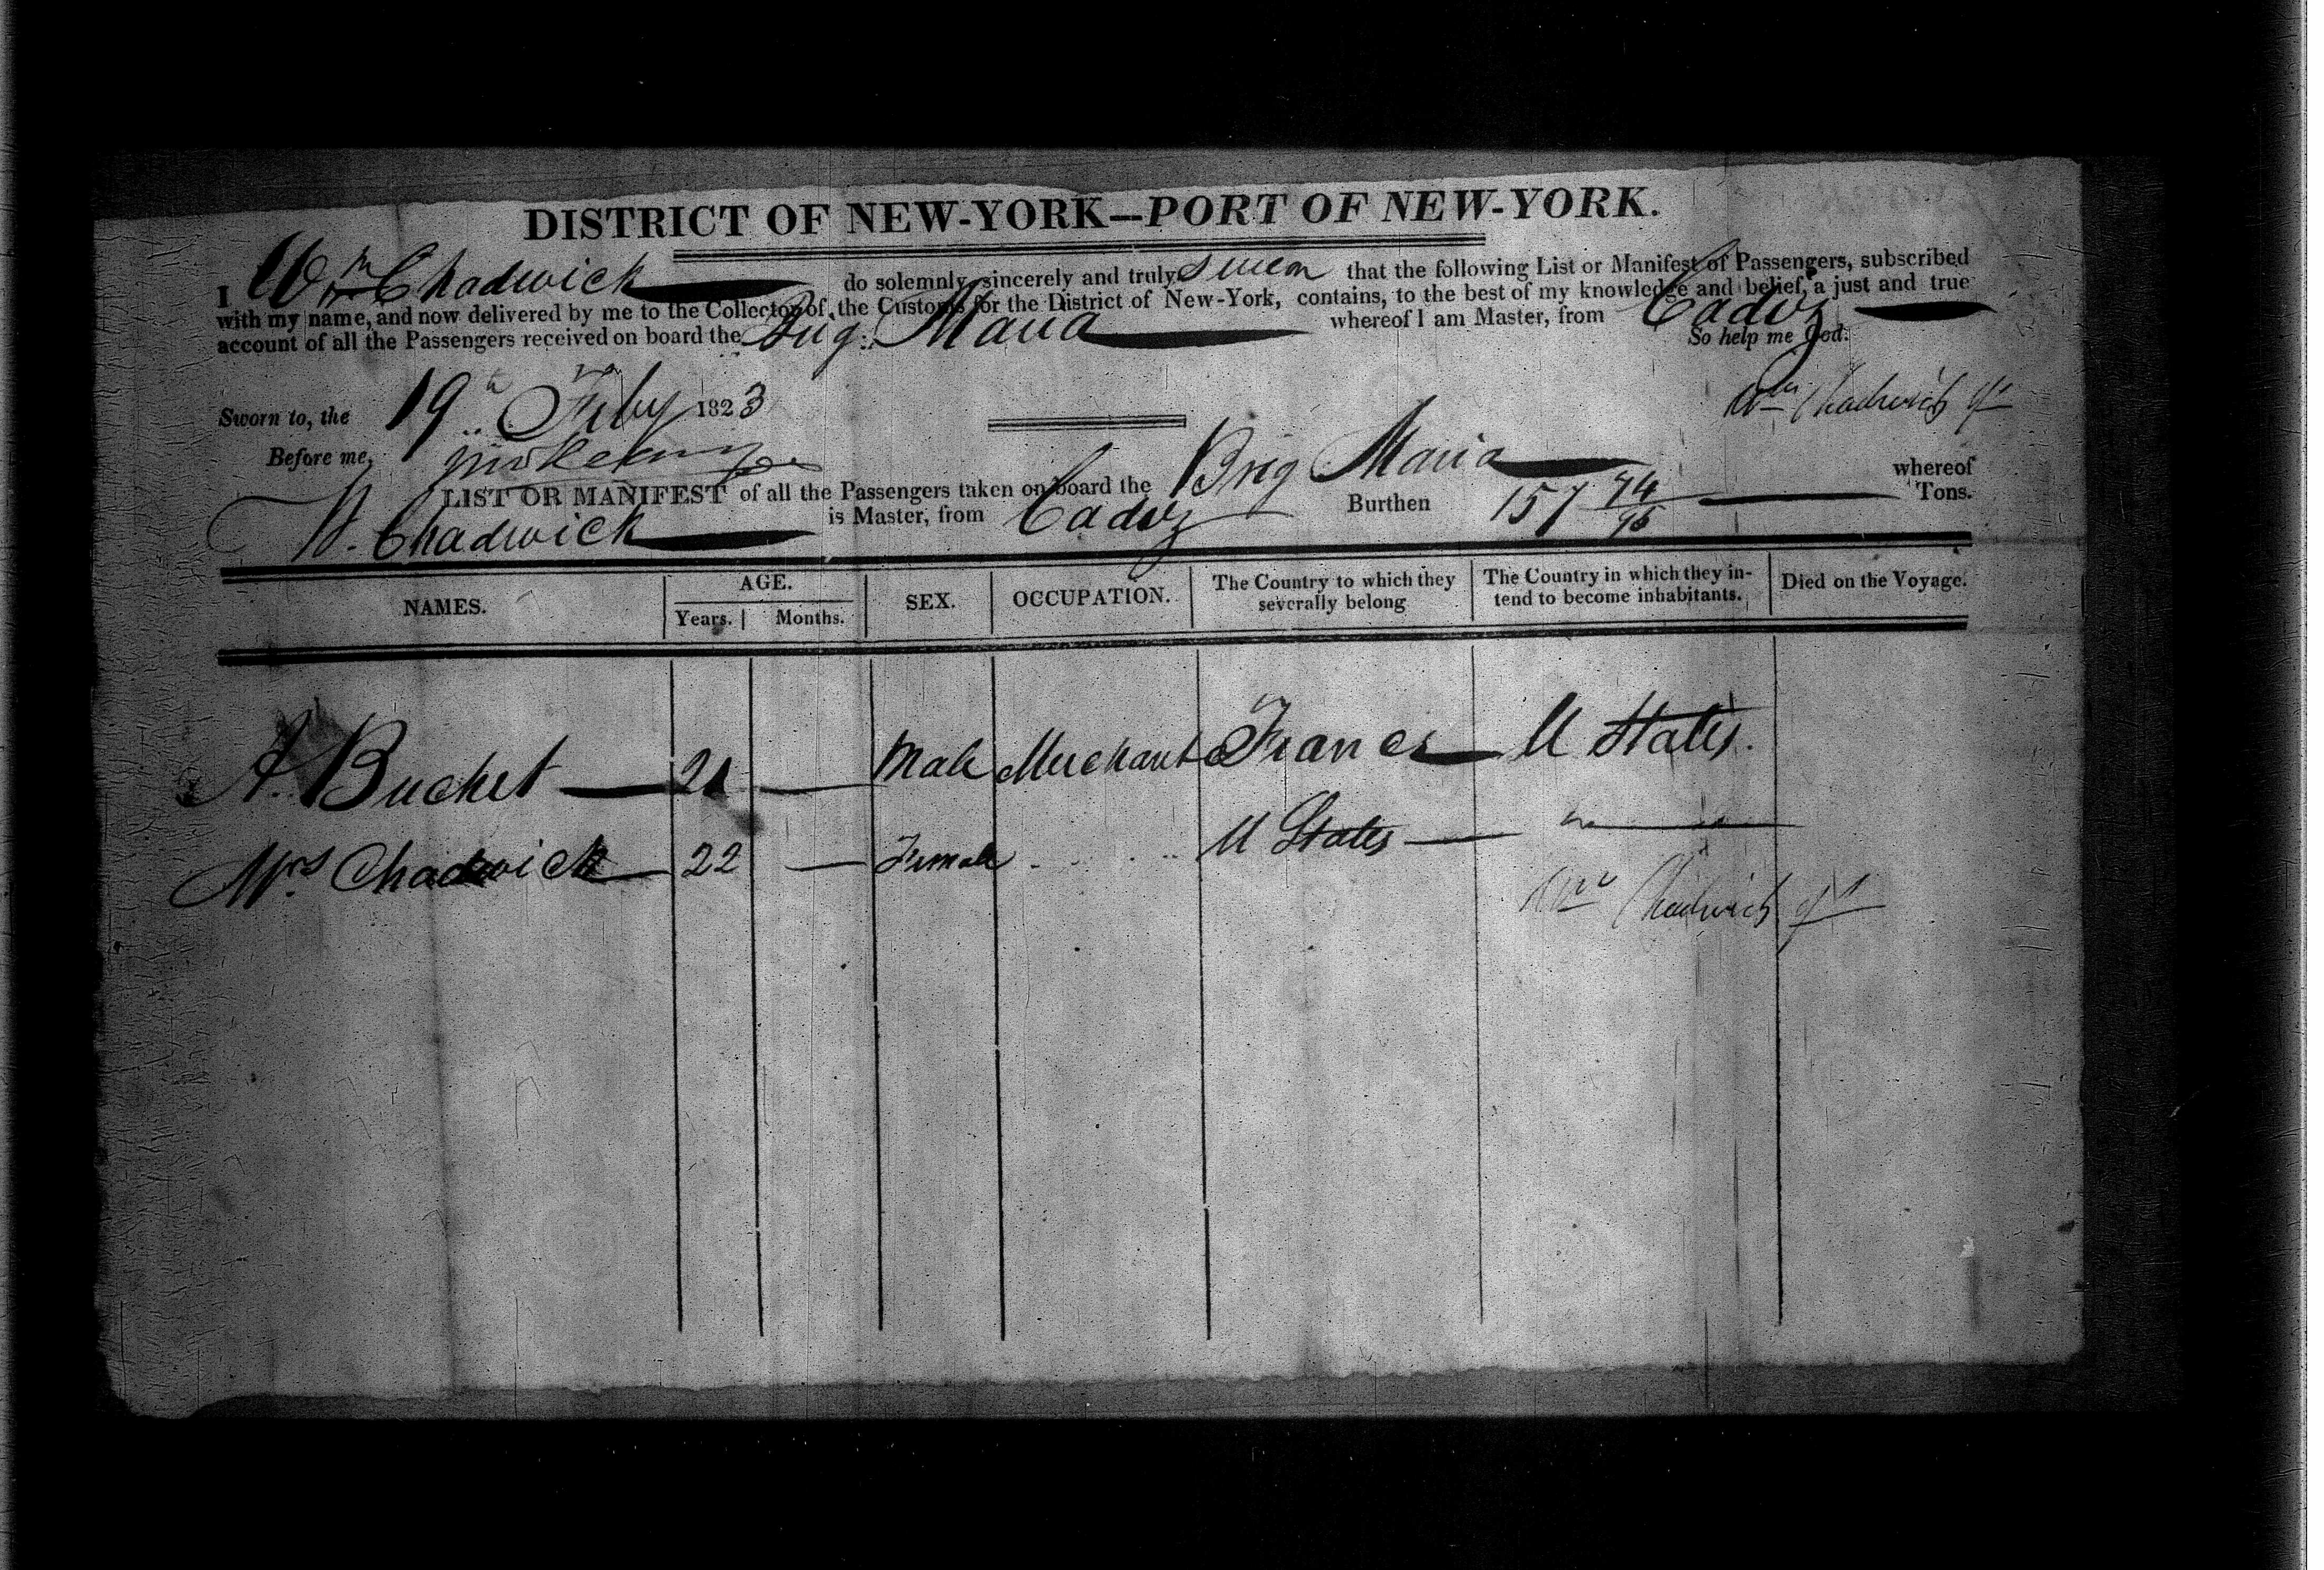 DISTRICT OF NEW-YORK—PORT OF NEW-YORK.
I Wm Chadwick do solemnly, sincerely and truly swear that the following List or Manifest of Passengers, subscribed
with my name, and now delivered by me to the Collector of the Customs for the District of New-York, contains, to the best of my knowledge and belief, a just and true
account of all the Passengers received on board the Brig: Maria whereof I am Master, from Cadiz
So help me God.
Sworn to, the 19th Feby 1823
Wm Chadwick Jr
Before me,
LIST OR MANIFEST of all the Passengers taken on board the Brig Maria whereof
W. Chadwick is Master, from Cadiz Burthen 157 74/95 Tons.
NAMES. AGE. Years. Months. SEX. OCCUPATION. The Country to which they severally belong The Country in which they intend to become inhabitants. Died on the Voyage.
A. Buchet — 21 — Male Merchant France — U States.
Mrs Chadwick — 22 — Female U States —
Wm Chadwick Jr